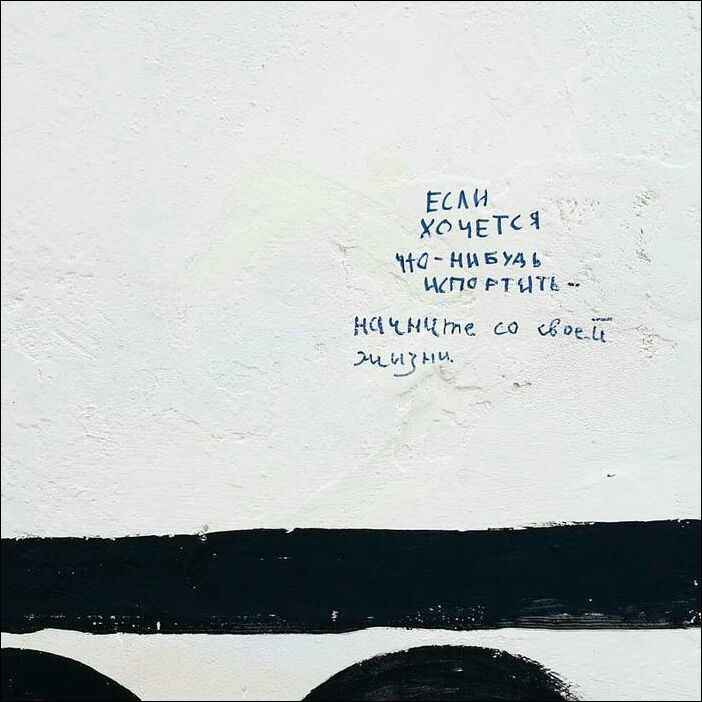 ЕСЛИ
ХОЧЕТСЯ
ЧТО-НИБУДЬ
ИСПОРТИТЬ..
начните со своей
жизни.